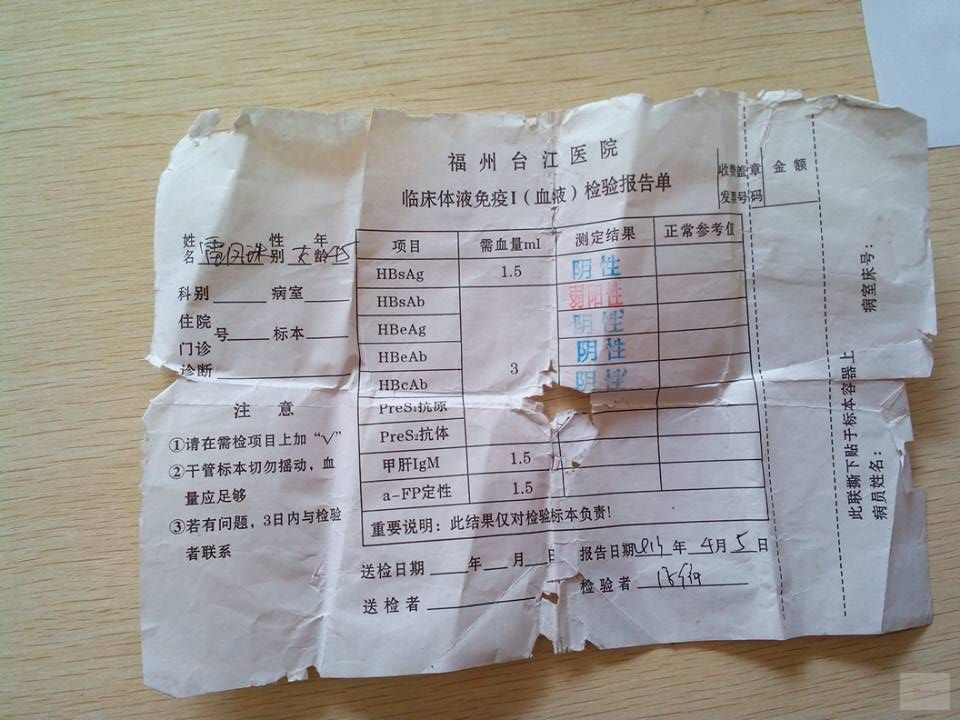 福州台江医院
临床体液免疫I（血液）检验报告单
收费盖章 金额
发票号码
姓名 性别 女 年龄 45
科别 病室
住院
门诊 号 标本
诊断
注 意
①请在需检项目上加“√”
②干管标本切勿摇动，血
量应足够
③若有问题，3日内与检验
者联系
项目 需血量ml 测定结果 正常参考值
HBsAg 1.5 阴性
HBsAb 弱阳性
HBeAg 阴性
HBeAb 3 阴性
HBcAb 阴性
PreS₁抗原
PreS₂抗体
甲肝IgM 1.5
a-FP定性 1.5
重要说明：此结果仅对检验标本负责!
送检日期 年 月 日 报告日期 年 4月 5日
送检者 检验者
此联撕下贴于标本容器上
病员姓名：
病室床号：